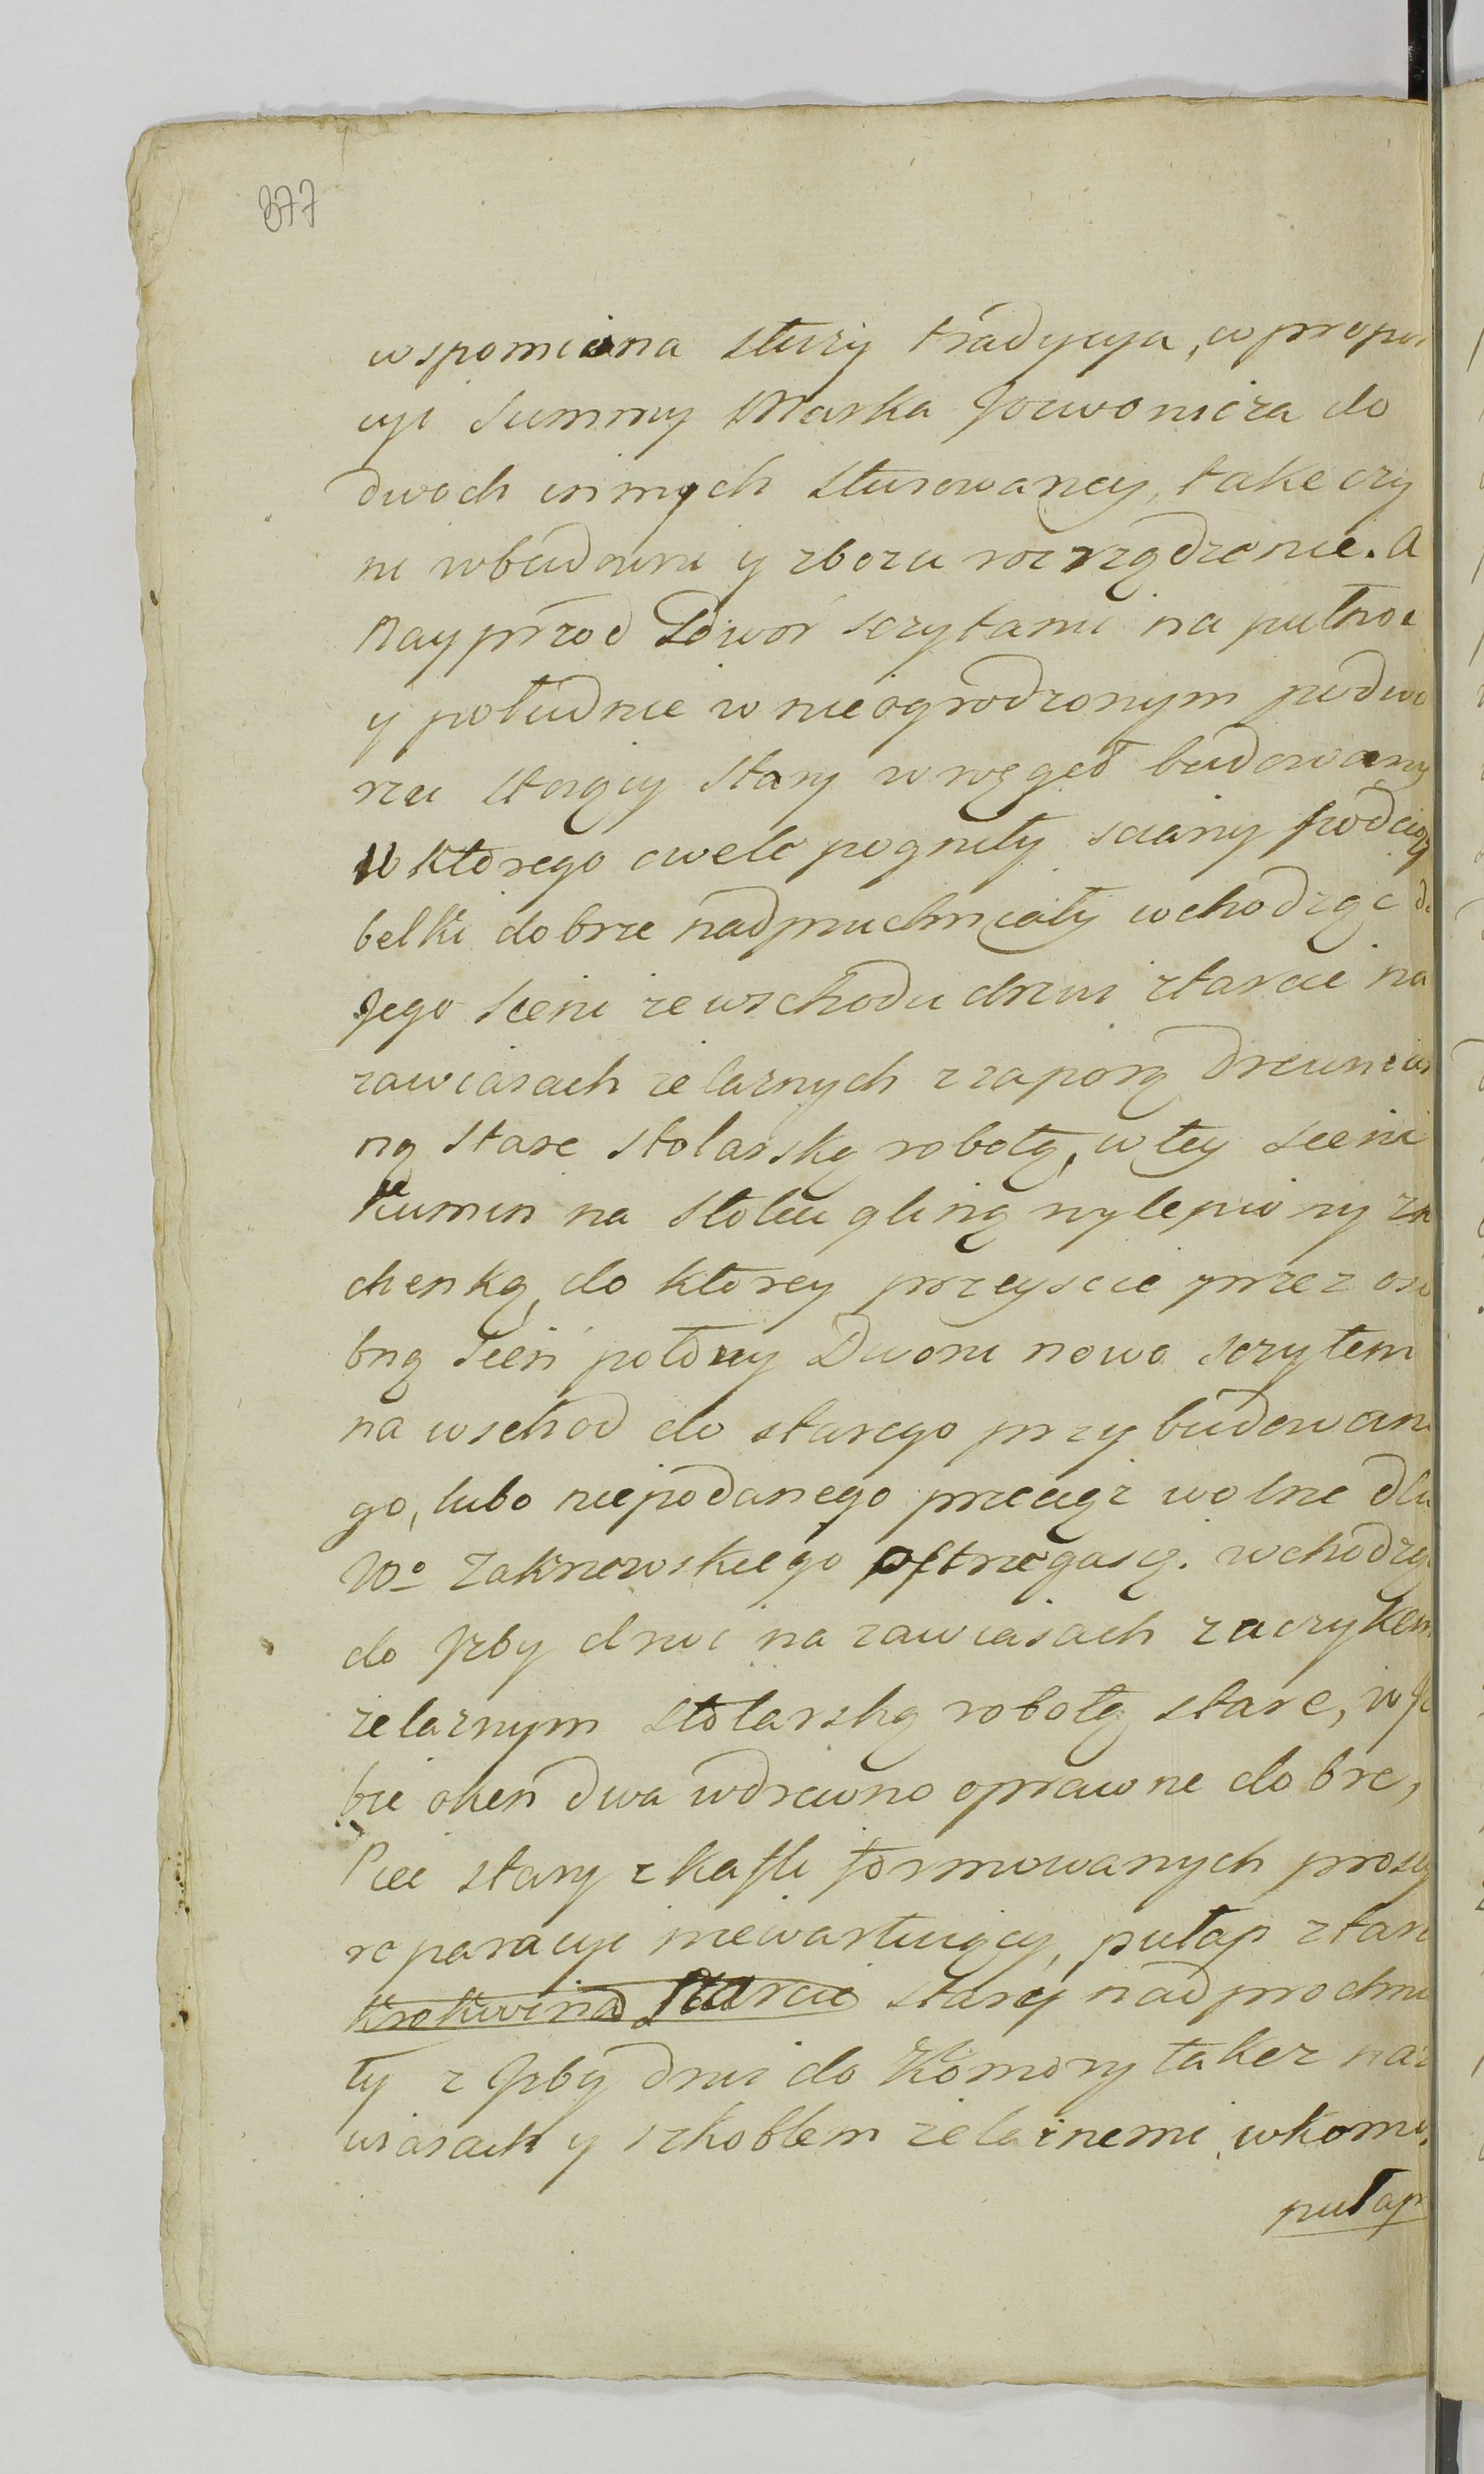 377
wspomiona służy tradycya, w propor
cyi Summy Marka Jozwonicza do
dwoch innych stusowaney, take czy
ni wbudowni y zbozu rozrządzenie. A
Nayprzod Dwor sczytami na pułnoc
y południe w nieogrodzonym podwo
rzu stoiący stary w węgeł budowany
U ktorego cwele pogniły sciany podcią
belki dobrze nadpruchniały wchodząc do
Jego sieni ze wschodu drzwi ztarcic na
zawiasach zelaznych z zaporą drewnia
ną stare stolarską robotą, w tey sieni
Kumin na słolcu gliną wylepiony z ku
chenką, do ktorey przeyscie przez oso
bną sień połowy Dworu nowo sczytem
na wschod do starego przybudowane
go, lubo niepodanego przeciąż wolne dla
Wo Zakrzewskiego ostrzegasię. wchodząc
do Jzby drzwi na zawiasach zaczykiem
zelaznym stolarską robotą stare, w Jz
bie okien dwa wdrewno oprawne dobre,
Piec stary z kafli formowanych prosty
reparacyi niewartuiący, pułap ztarc
Krokwina Starcic stary nadprochnia
ły z Jzby drzwi do Komory takez na za
wiasach y szkoblem zelaznemi, wkomo,
pułap